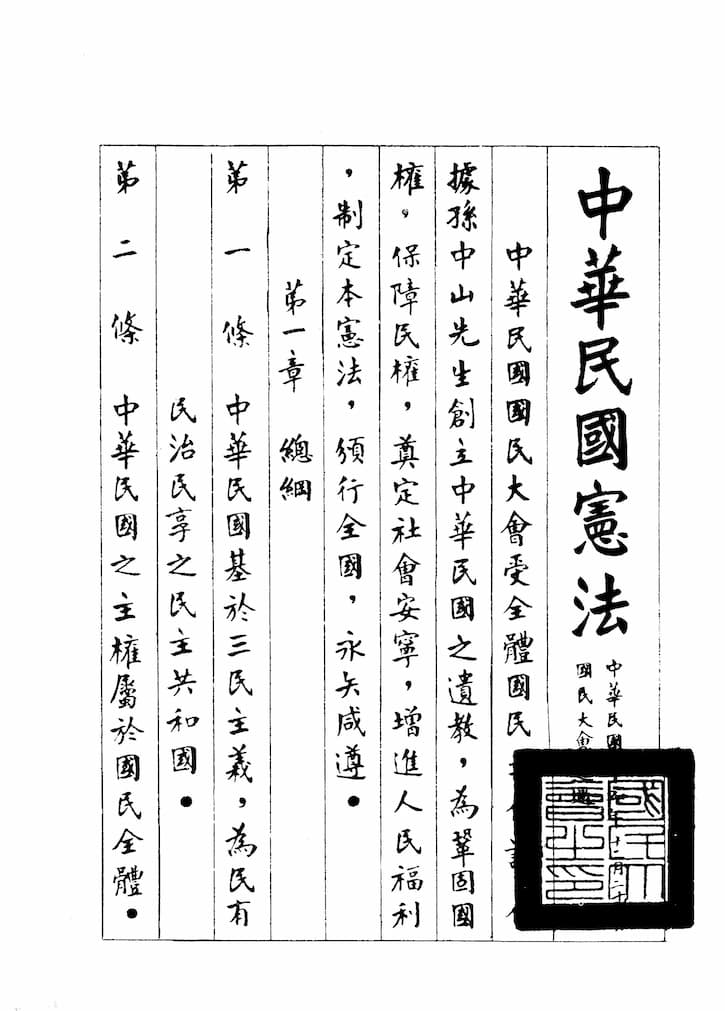 中華民國憲法
中華民國 年十二月二十
國民大會
中華民國國民大會受全體國民
據孫中山先生創立中華民國之遺教，為鞏固國
權，保障民權，奠定社會安寧，增進人民福利
，制定本憲法，頒行全國，永矢咸遵。
第一章 總綱
第一條 中華民國基於三民主義，為民有
民治民享之民主共和國。
第二條 中華民國之主權屬於國民全體。